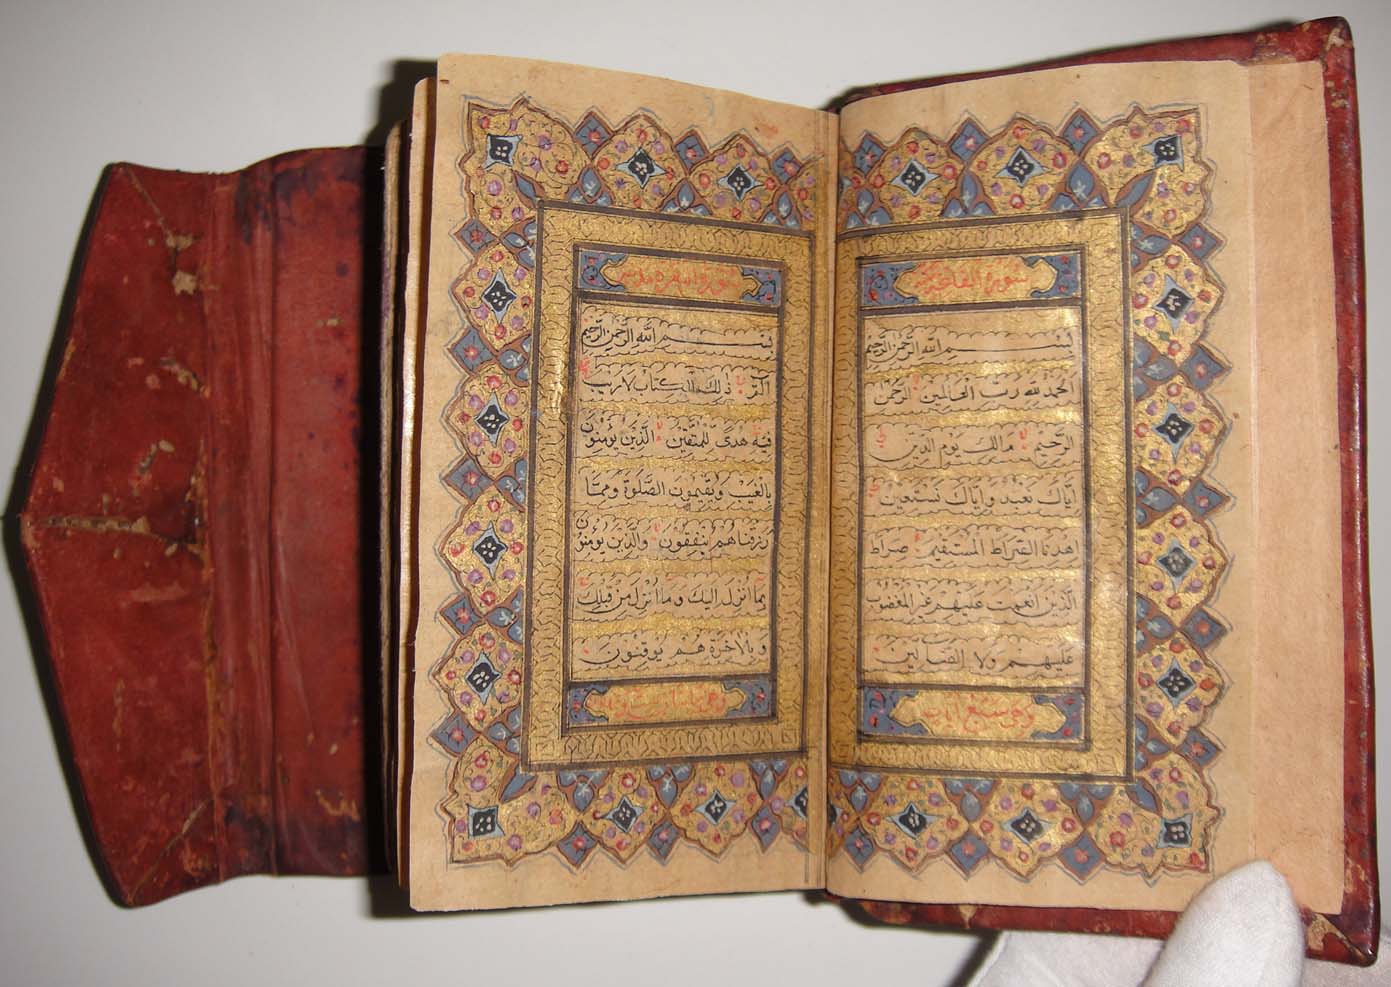 سورة الفاتحة
بسم الله الرحمن الرحيم
الحمد لله رب العالمين الرحمن
الرحيم مالك يوم الدين
اياك نعبد و اياك نستعين
اهدنا الصراط المستقيم صراط
الذين انعمت عليهم غير المغضوب
عليهم ولا الضالين
وهي سبع ايات
سورة البقرة
بسم الله الرحمن الرحيم
الم ذلك الكتاب لا ريب
فيه هدى للمتقين الذين يؤمنون
بالغيب ويقيمون الصلوة ومما
رزقناهم ينفقون والذين يؤمنون
بما انزل اليك وما انزل من قبلك
وبالاخرة هم يوقنون